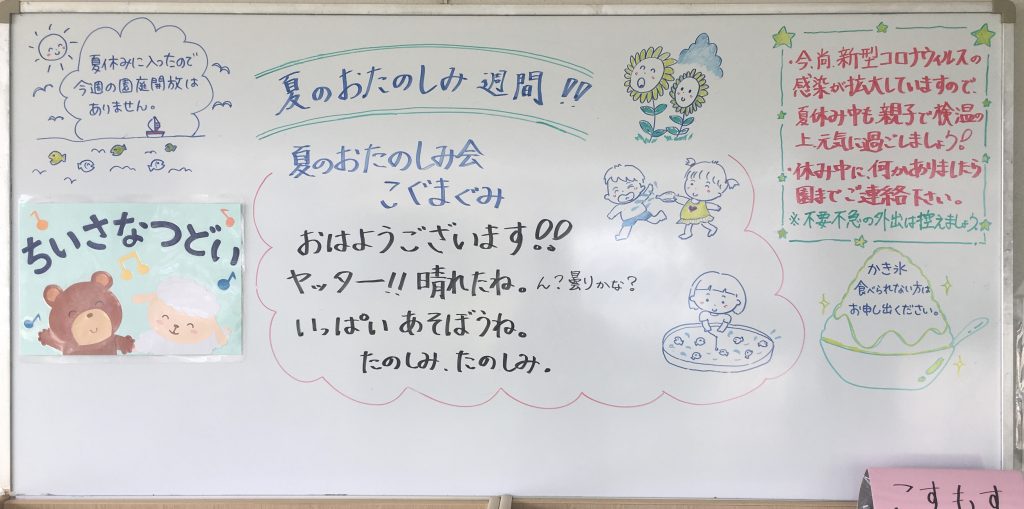 夏休みに入ったので
今週の園庭開放は
ありません。
夏のおたのしみ週間!!
夏のおたのしみ会
こぐまぐみ
おはようございます!!
ヤッター!!晴れたね。ん?曇りかな?
いっぱいあそぼうね。
たのしみ、たのしみ。
ちいさなつどい
・今尚、新型コロナウィルスの
感染が拡大していますので、
夏休み中も、親子で検温の
上、元気に過ごしましょう!
・休み中に、何かありましたら
園までご連絡下さい。
※不要不急の外出は控えましょう
かき氷
食べられない方は
お申し出ください。
こすもす